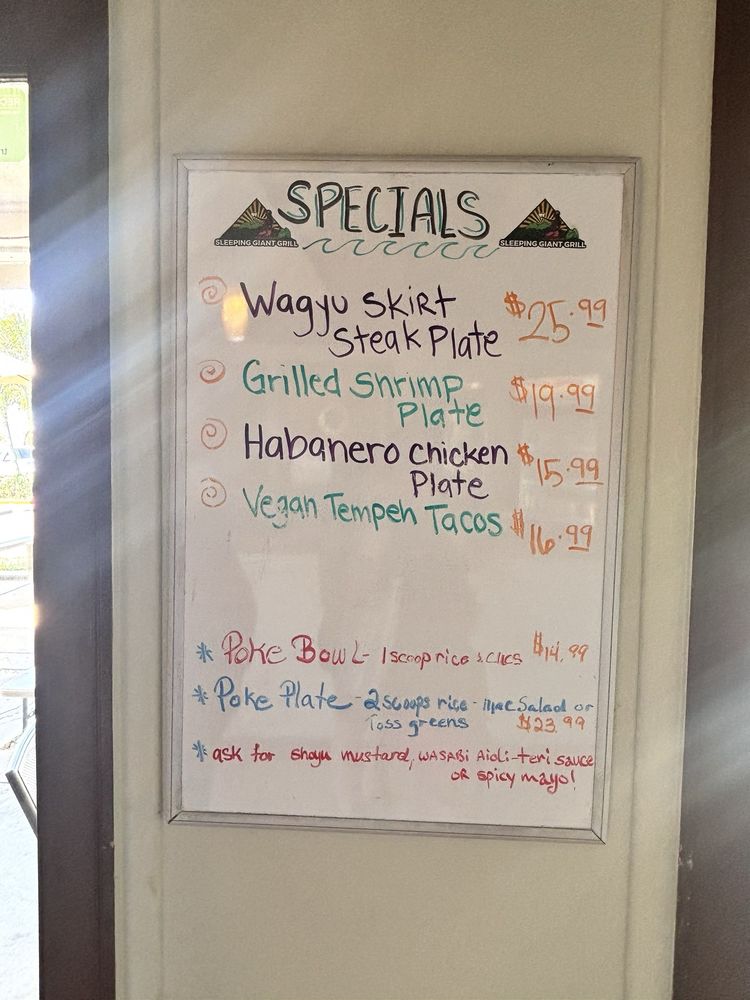 SPECIALS
SLEEPING GIANT GRILL
SLEEPING GIANT GRILL
Wagyu Skirt $25.99
Steak Plate
Grilled Shrimp $19.99
Plate
Habanero Chicken $15.99
Plate
Vegan Tempeh Tacos $16.99
* Poke Bowl - 1 scoop rice $14.99
* Poke Plate - 2 scoops rice - mac Salad or
Toss greens $23.99
* ask for shoyu mustard, WASABI Aioli-teri sauce
OR spicy mayo!